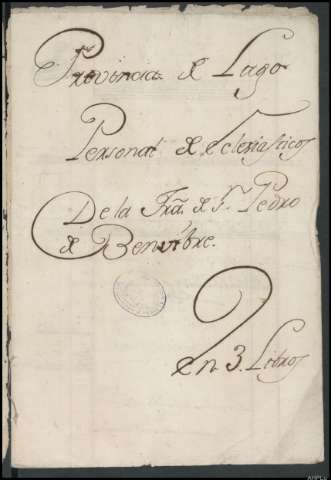 Provincia de Lugo
Personal de Eclesiasticos
De la Fra. de Sn. Pedro
de Benvibre.
en 3. Libros